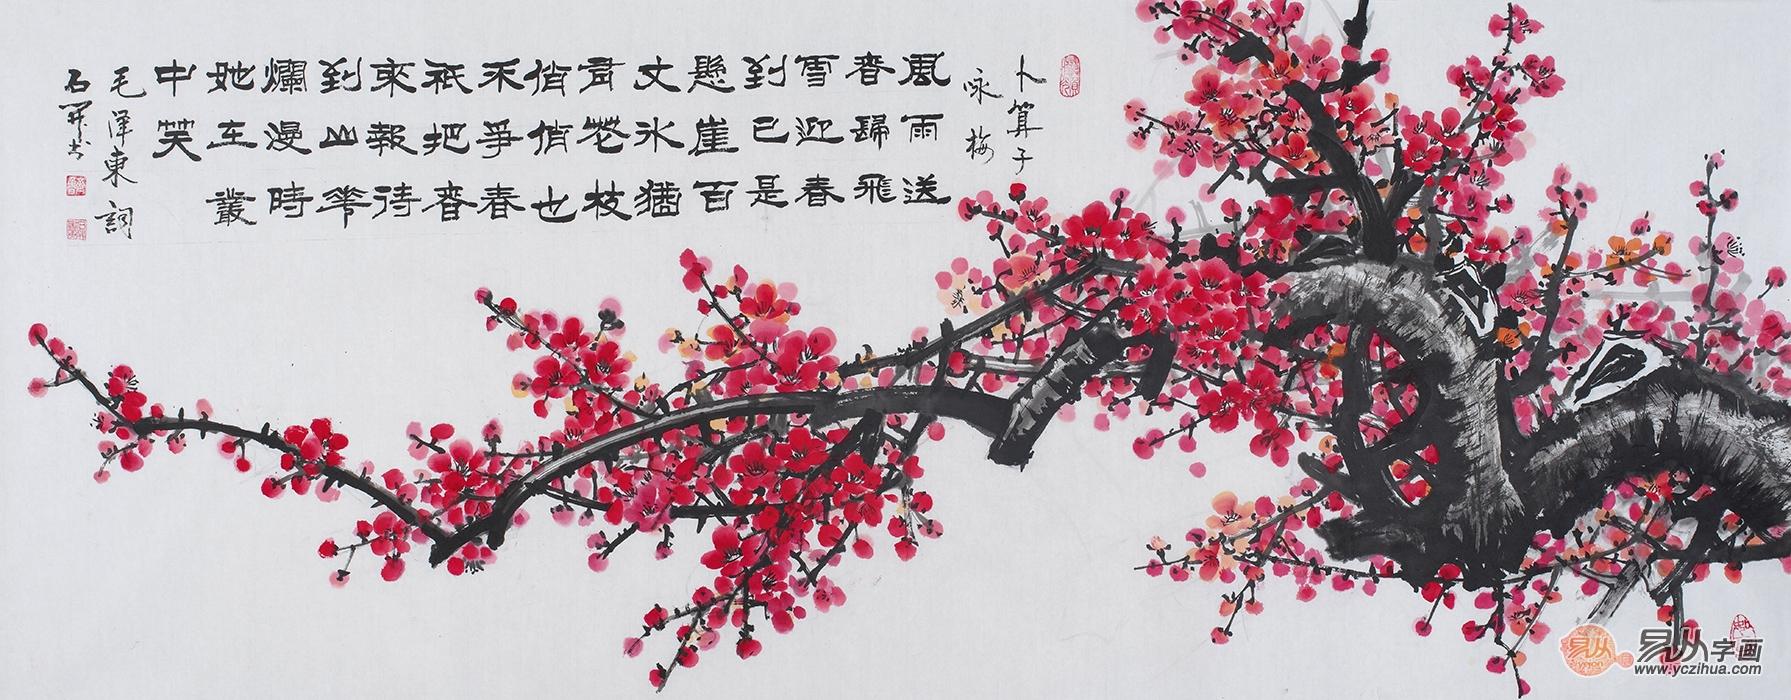 卜算子
咏梅
風雨送
春歸飛
雪迎春
到已是
懸崖百
丈冰猶
有花枝
俏俏也
不爭春
祇把春
來報待
到山花
爛漫時
她在叢
中笑
毛澤東詞
石開书
易从字画
www.yczihua.com